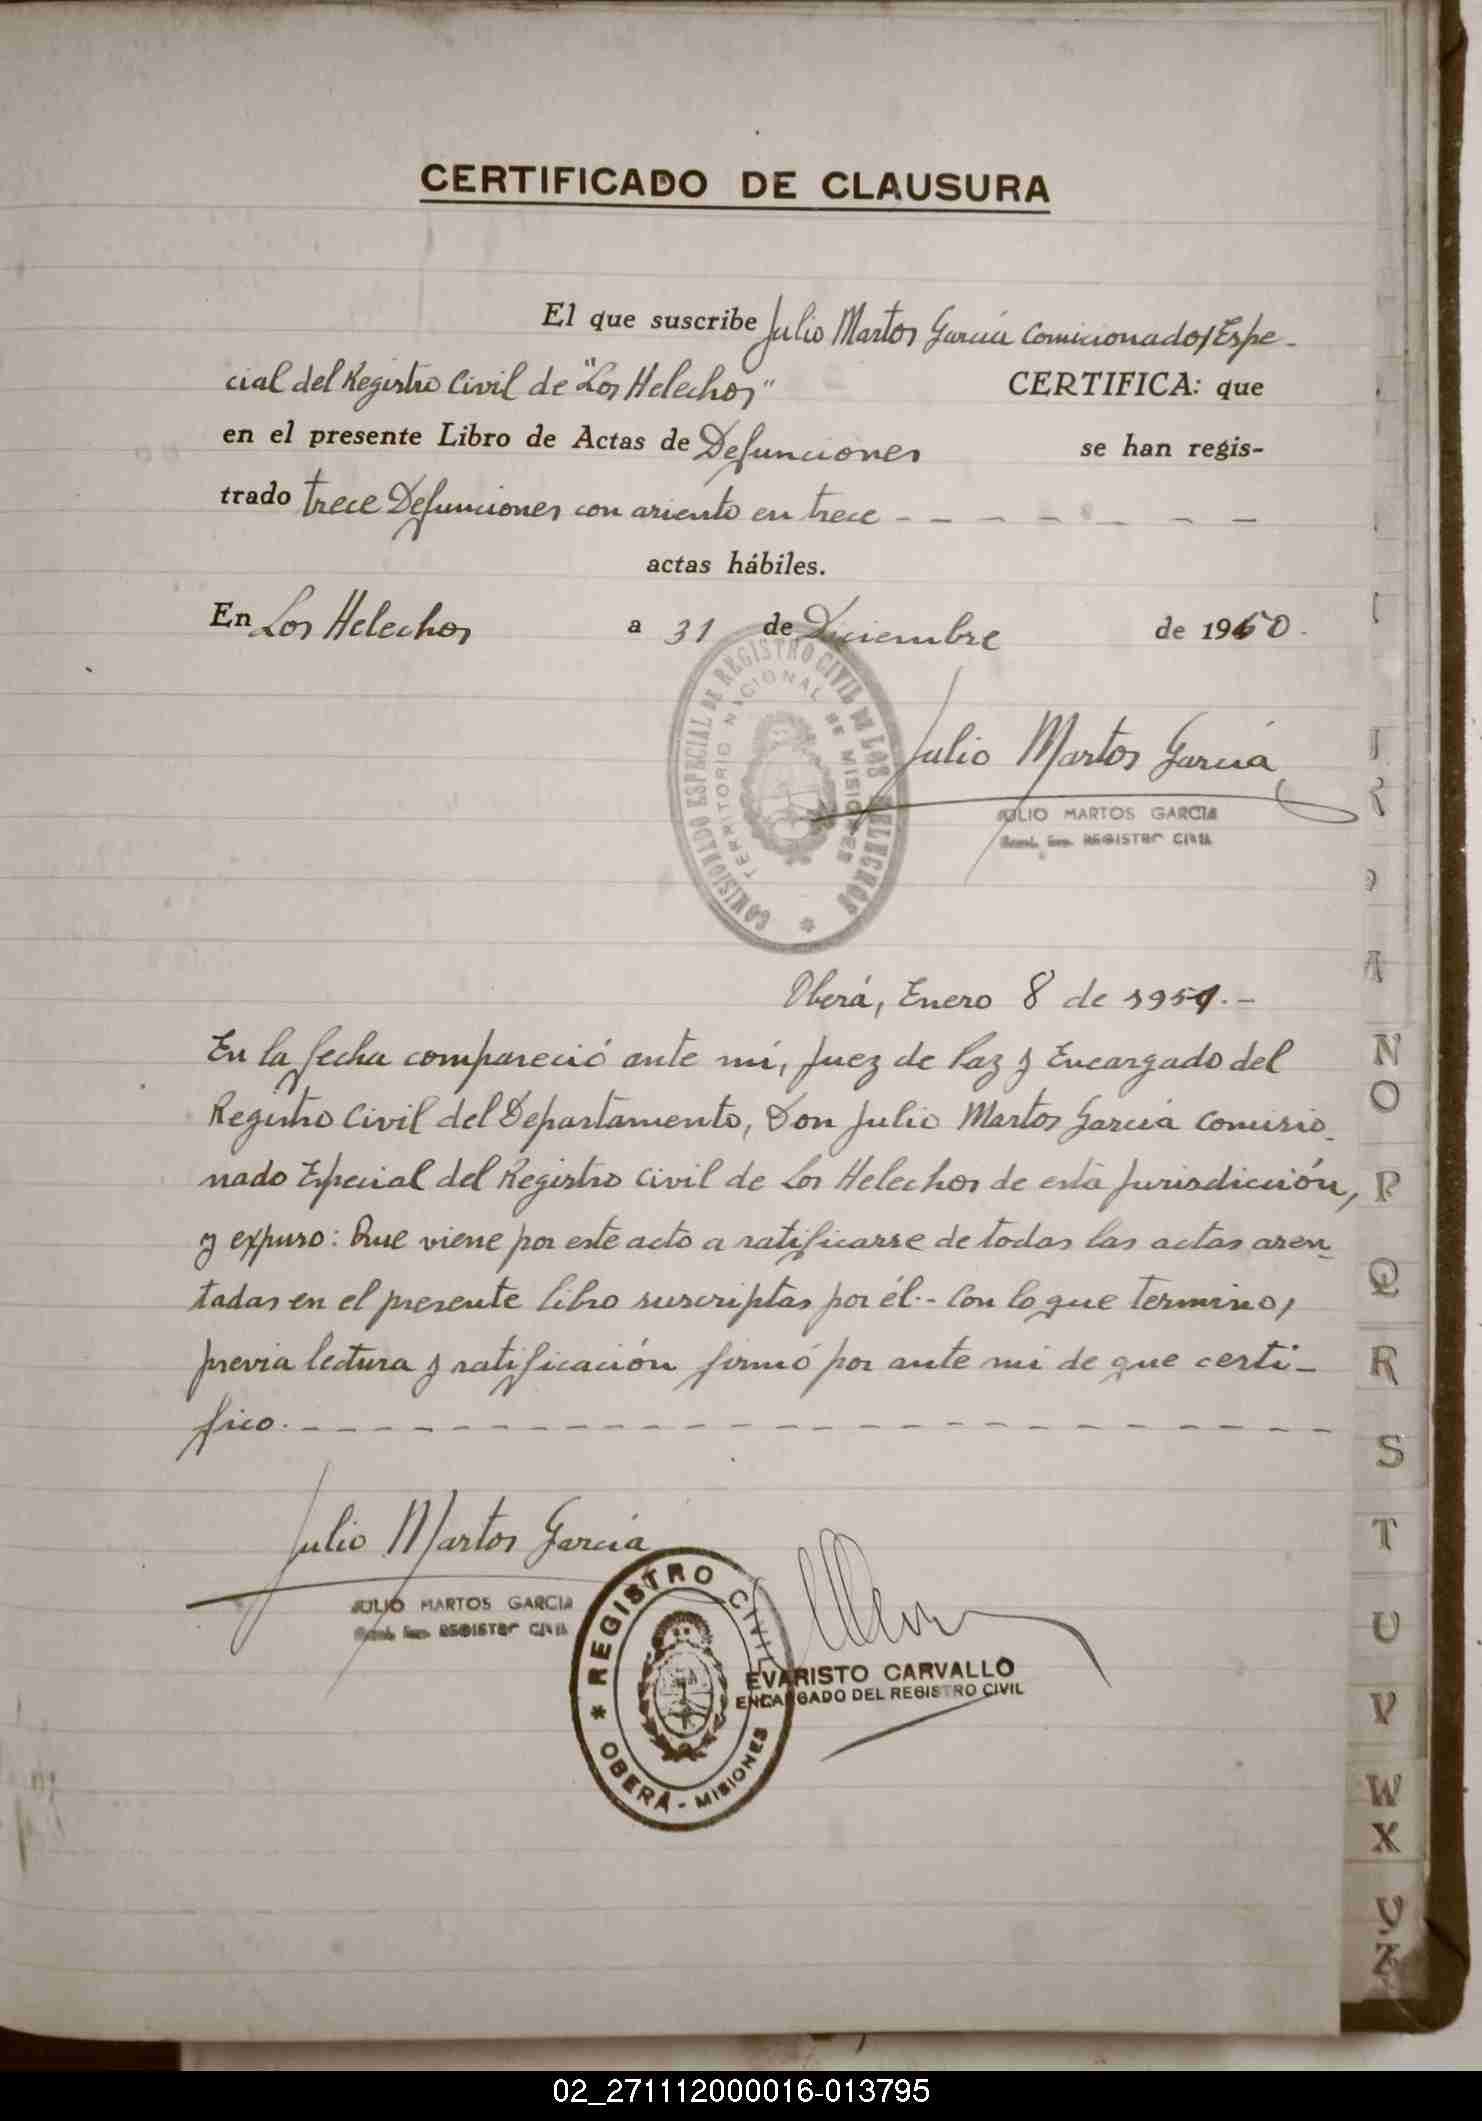 CERTIFICADO DE CLAUSURA
El que suscribe Julio Martos García Comicionado Espe-
cial del Registro Civil de "Los Helechos" CERTIFICA: que
en el presente Libro de Actas de Defunciones se han regis-
trado trece Defunciones con asiento en trece - - - - - - - -
actas hábiles.
En Los Helechos a 31 de Diciembre de 1950.
COMISIONADO ESPECIAL DE REGISTRO CIVIL DE LOS HELECHOS *
TERRITORIO NACIONAL DE MISIONES
Julio Martos García
JULIO MARTOS GARCIA
REGISTRO CIVIL
Oberá, Enero 8 de 1951.-
En la fecha compareció ante mí, Juez de Paz y Encargado del
Registro Civil del Departamento, Don Julio Martos García Comisio-
nado Especial del Registro Civil de Los Helechos de esta Jurisdicción,
y expuso: Que viene por este acto a ratificarse de todas las actas asen-
tadas en el presente libro suscriptas por él.- Con lo que termino,
previa lectura y ratificación firmó por ante mi de que certi-
fico. - - - - - - - - - - - - - - - - - - - - - - - - - -
Julio Martos García
JULIO MARTOS GARCIA
REGISTRO CIVIL
* REGISTRO CIVIL
OBERÁ - MISIONES
EVARISTO CARVALLO
ENCARGADO DEL REGISTRO CIVIL
N
O
P
Q
R
S
T
U
V
W
X
Y
Z
02_271112000016-013795